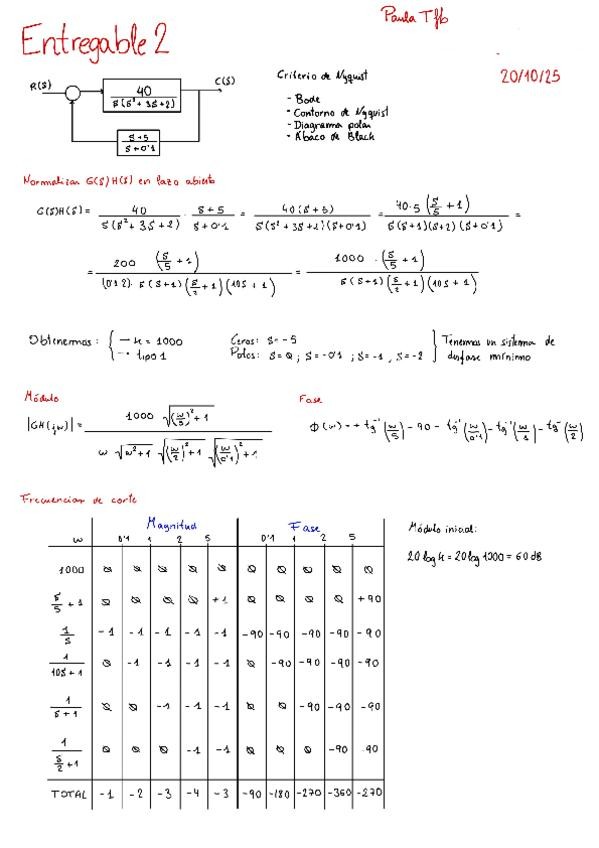 Paula Tfb
Entregable 2
20/10/25
R(s)
40
s(s²+3s+2)
C(s)
s+5
s+0'1
Criterio de Nyquist
- Bode
- Contorno de Nyquist
- Diagrama polar
- Abaco de Black
Normalizar G(s)H(s) en lazo abierto
G(s)H(s) = 40 / s(s²+3s+2) · s+5 / s+0'1 = 40(s+5) / s(s²+3s+2)(s+0'1) = 40·5 (s/5 + 1) / s(s+1)(s+2)(s+0'1) =
= 200 (s/5 + 1) / (0'1·2)· s(s+1)(s/2 + 1)(10s + 1) = 1000 · (s/5 + 1) / s(s+1)(s/2 + 1)(10s + 1)
Obtenemos: { – K = 1000
– tipo 1
Ceros: s = -5
Polos: s=0 ; s=-0'1 ; s=-1 , s=-2
} Tenemos un sistema de
desfase mínimo
Módulo
|GH(jw)| = 1000 √(w/5)²+1 / w √w²+1 √(w/2)²+1 √(w/0'1)²+1
Fase
Φ(w) = + tg⁻¹(w/5) - 90 - tg⁻¹(w/0'1) - tg⁻¹(w/1) - tg⁻¹(w/2)
Frecuencias de corte
Magnitud Fase
w 0'1 1 2 5 0'1 1 2 5
1000 Ø Ø Ø Ø Ø Ø Ø Ø Ø Ø
s/5 + 1 Ø Ø Ø Ø +1 Ø Ø Ø Ø +90
1/s -1 -1 -1 -1 -1 -90 -90 -90 -90 -90
1/10s+1 Ø -1 -1 -1 -1 Ø -90 -90 -90 -90
1/s+1 Ø Ø -1 -1 -1 Ø Ø -90 -90 -90
1/s/2+1 Ø Ø Ø -1 -1 Ø Ø Ø -90 -90
TOTAL -1 -2 -3 -4 -3 -90 -180 -270 -360 -270
Módulo inicial:
20 log K = 20 log 1000 = 60 dB